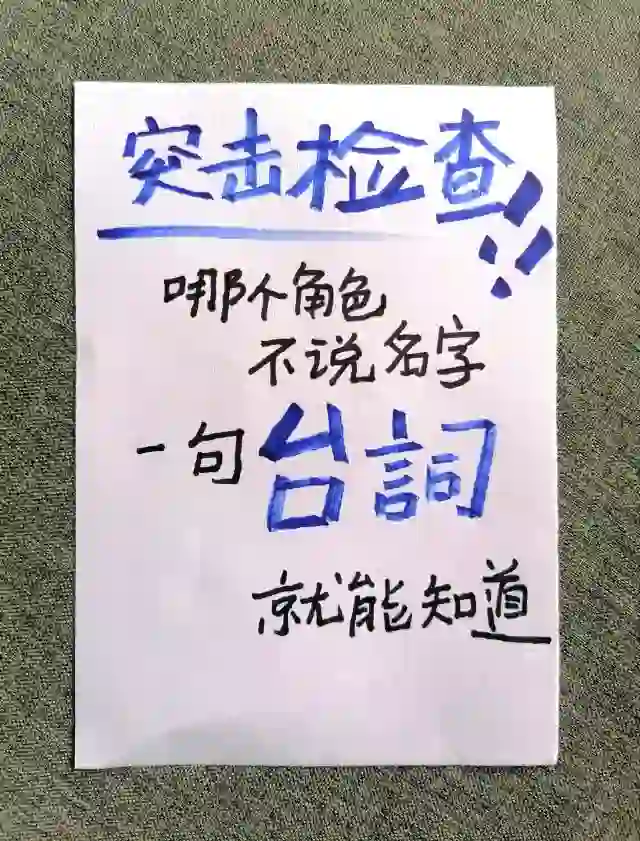 突击检查!!
哪个角色
不说名字
一句台詞
就能知道